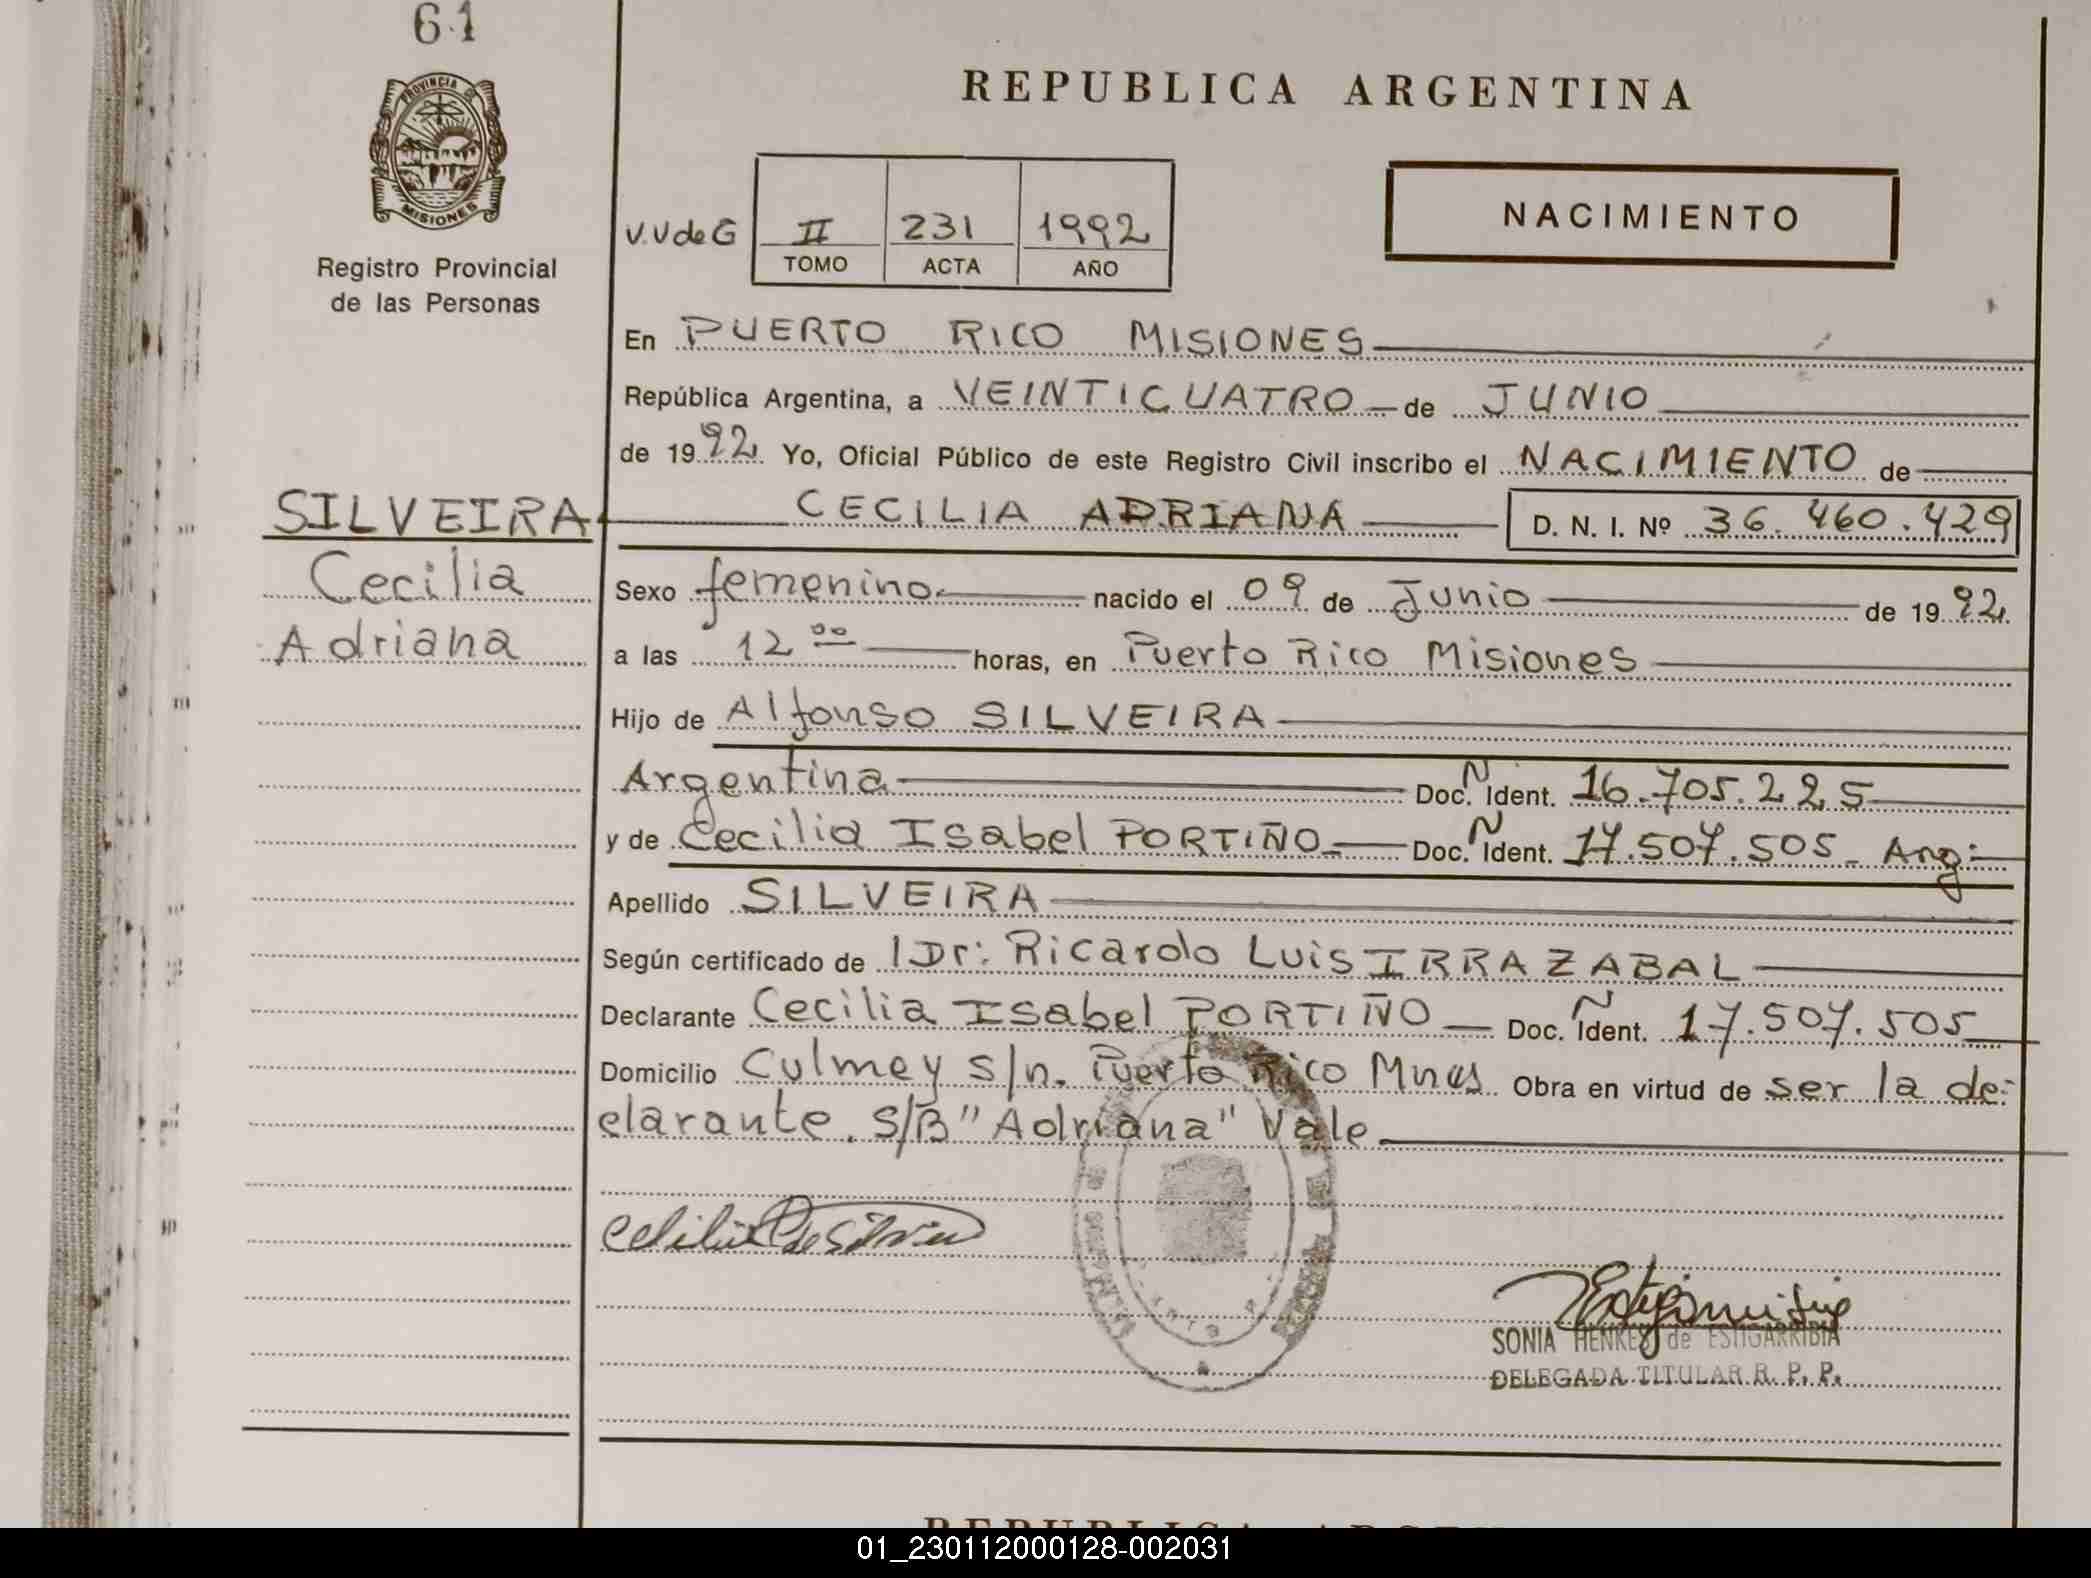 61
PROVINCIA DE
MISIONES
Registro Provincial
de las Personas
REPUBLICA ARGENTINA
V.V de G
II 231 1992
TOMO ACTA AÑO
NACIMIENTO
En PUERTO RICO MISIONES
República Argentina, a VEINTICUATRO de JUNIO
de 1992 Yo, Oficial Público de este Registro Civil inscribo el NACIMIENTO de
SILVEIRA
Cecilia
Adriana
CECILIA ADRIANA D. N. I. Nº 36.460.429
Sexo femenino nacido el 09 de Junio de 1992
a las 12 00 horas, en Puerto Rico Misiones
Hijo de Alfonso SILVEIRA
Argentina Doc. Ñ Ident. 16.705.225
y de Cecilia Isabel PORTIÑO Doc. Ñ Ident. 17.507.505 - Arg:
Apellido SILVEIRA
Según certificado de Dr: Ricardo Luis IRRAZABAL
Declarante Cecilia Isabel PORTIÑO Doc. Ñ Ident. 17.507.505
Domicilio Culmey s/n. Puerto Rico Mnes Obra en virtud de ser la de-
clarante. S/B "Adriana" Vale
SONIA HENKES de ESTIGARRIBIA
DELEGADA TITULAR R. P. P.
REPUBLICA ARGEN
01_230112000128-002031